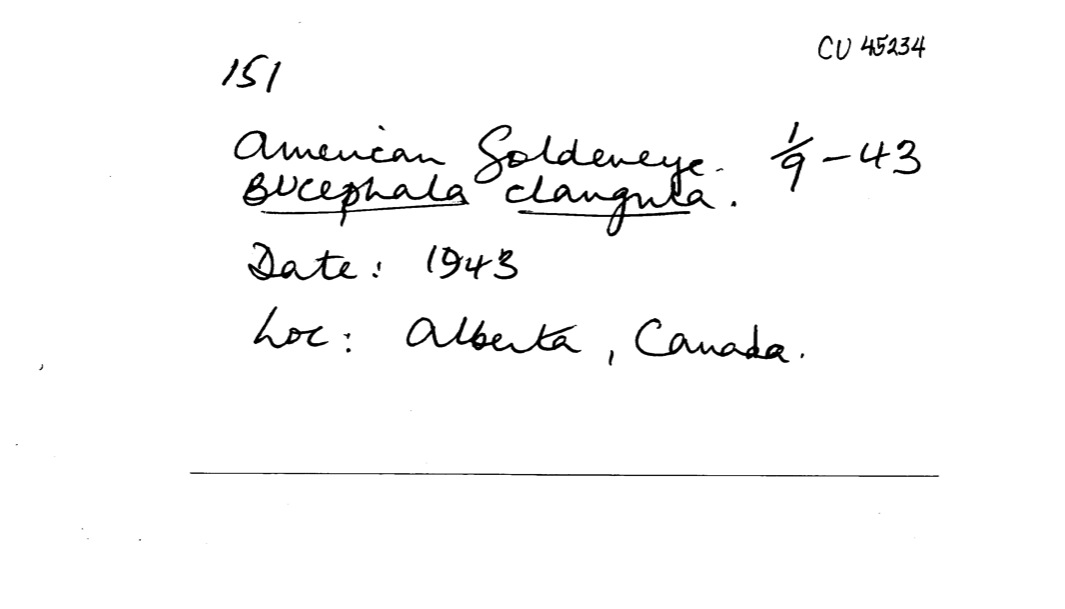 CU 45234
151
American Goldeneye. 1/9-43
Bucephala clangula.
Date: 1943
Loc: Alberta, Canada.